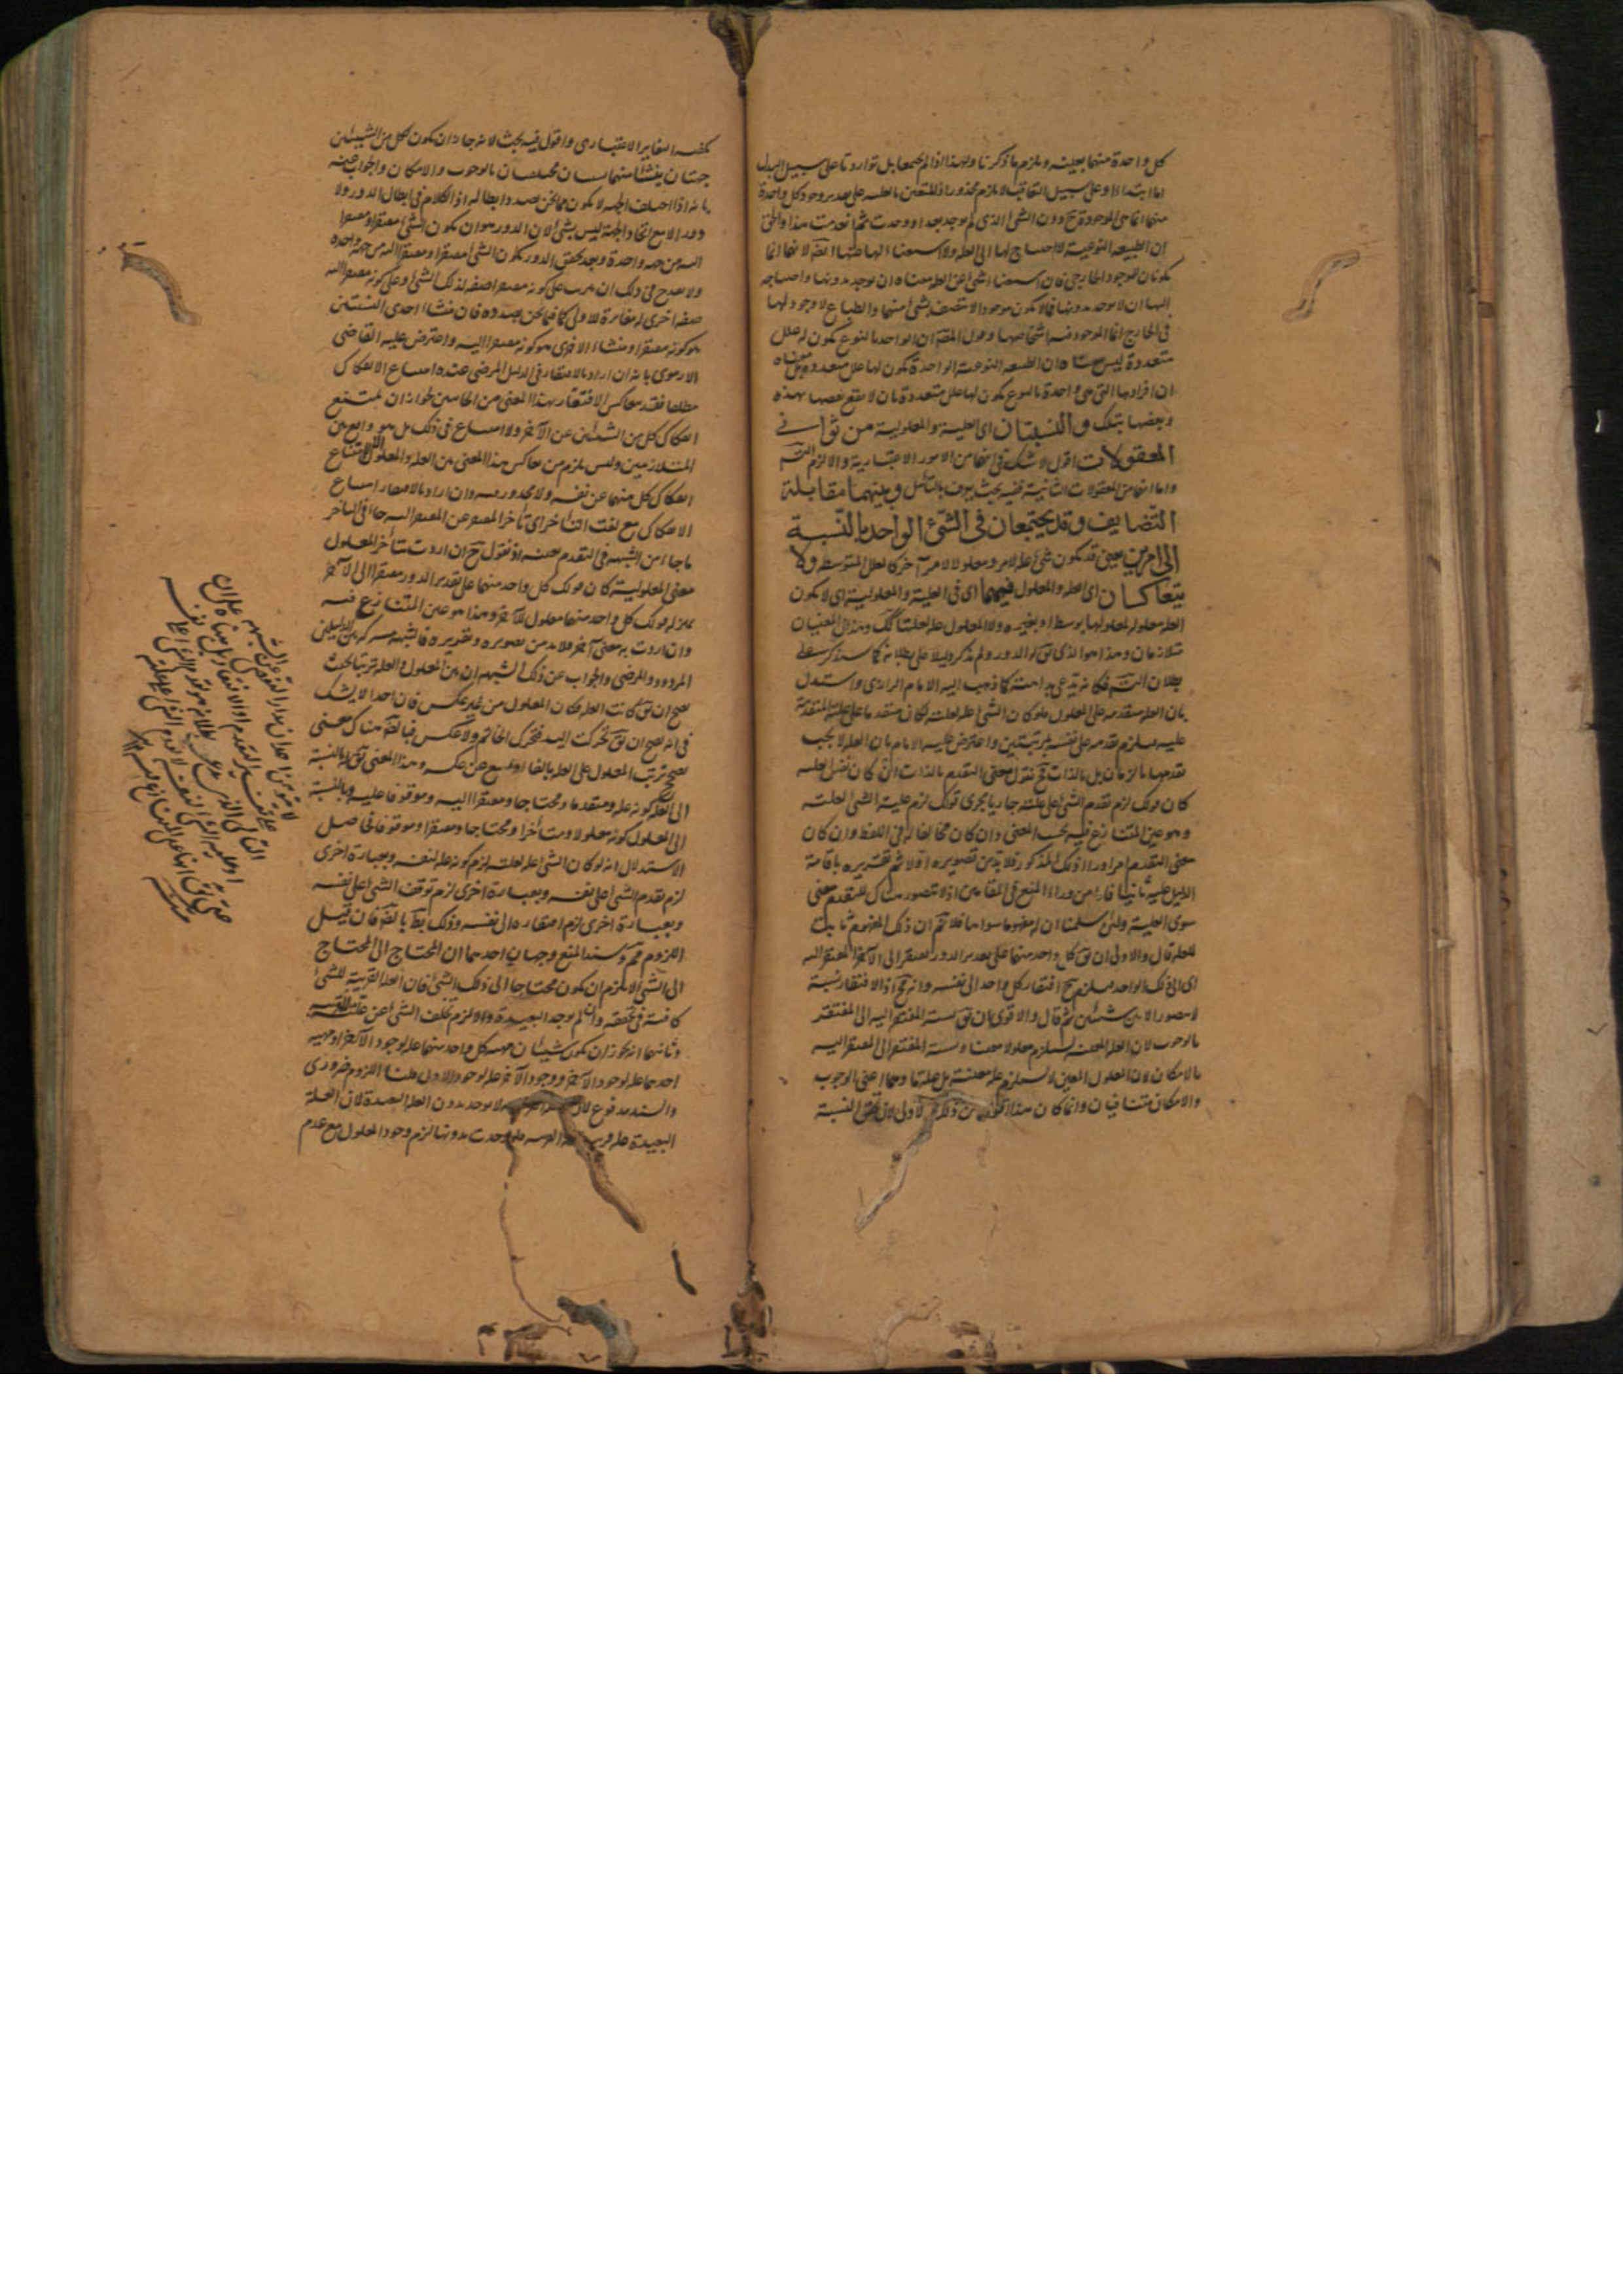 كل واحدة منهما بعينه ويلزم ما ذكرنا وبهذا اذا لم يجتمعا بل تواردتا على سبيل البدل
اما ابتداء او على سبيل التعاقب لا يلزم محذور اذ المتعين بالعلية على تقدير وجود كل واحدة
منهما انما هى الموجودة ح دون الشئ الذى لم يوجد بعد او وجدت ثم انعدمت هذا والحق
ان الطبيعة النوعية لا احتياج لها الى العلة ولا استغناء لها عنها ايضا لانهما انما
يكونان للموجود الخارجى فان استغناء الشئ عن العلة معناه ان يوجد بدونها واحتياجه
اليها ان لا يوجد بدونها فما لا يكون موجودا لا يتصف بشئ منهما والطبائع لا وجود لها
فى الخارج انما الموجود فيه اشخاصها وقول المصنف ان الواحد بالنوع يكون له علل
متعددة ليس معناه ان الطبيعة النوعية الواحدة يكون لها علل متعددة بل معناه
ان افرادها التى هى واحدة بالنوع يكون لها علل متعددة بان يقع بعضها بهذه
وبعضها بتلك والنسبتان اى العلية والمعلولية من ثوانى
المعقولات اقول لا شك فى انهما من الامور الاعتبارية والا لزم التسلسل
واما انهما من المعقولات الثانية ففيه بحث يعرف بالتأمل وبينهما مقابلة
التضايف وقد يجتمعان فى الشئ الواحد بالنسبة
الى امرين يعنى قد يكون شئ علة لامر ومعلولا لامر آخر كالعلل المتوسطة ولا
يتعاكسان اى العلة والمعلول فيهما اى فى العلية والمعلولية اى لا يكون
العلة معلولة لمعلولها بوسط او بغيره ولا المعلول علة لعلته كك وهذان المعنيان
متلازمان وهذا هو الذى يق له الدور ولم يذكر دليلا على بطلانه كما سنذكر على
بطلان التسلسل فكانه يدعى بداهته كما ذهب اليه الامام الرازى واستدل
بان العلة متقدمة على المعلول فلو كان الشئ علة لعلته لكان متقدما على علته المتقدمة
عليه فيلزم تقدمه على نفسه بمرتبتين واعترض عليه الامام بان العلة لا يجب
تقدمها بالزمان بل بالذات فح نقول معنى التقدم بالذات ان كان نفس العلية
كان قولك لزم تقدم الشئ على علته جاريا مجرى قولك لزم علية الشئ لعلته
وهو عين المتنازع فيه بحسب المعنى وان كان مخالفا له فى اللفظ وان كان
معنى التقدم امرا وراء ذلك المذكور فلا بد من تصويره اولا ثم تقريره باقامة
الدليل عليه ثانيا فانا من وراء المنع فى المقامين اذ لا يتصور هناك للتقدم معنى
سوى العلية ولئن سلمنا ان له مفهوما سواها فلا نسلم ان ذلك المفهوم ثابت
للعلة قال والاولى ان يق كل واحد منهما على تقدير الدور مفتقر الى الآخر المفتقر اليه
اى الى ذلك الواحد فيلزم ح افتقار كل واحد الى نفسه وانه مح اذ الافتقار نسبة
لا يتصور الا بين شيئين ثم قال والاقوى ان يق نسبة المفتقر اليه الى المفتقر
بالوجوب لان العلة المعينة تستلزم معلولا معينا ونسبة المفتقر الى المفتقر اليه
بالامكان لان المعلول المعين لا يستلزم علة معينة بل علة ما وهما اعنى الوجوب
والامكان متنافيان وانما كان هذا اقوى من ذلك الاولى لان تحقق النسبة
يكفيه التغاير الاعتبارى واقول فيه بحث لانه جاز ان يكون لكل من الشيئين
جهتان ينشأ منهما نسبتان مختلفتان بالوجوب والامكان والجواب عنه
بانه اذا اختلف الجهة لا يكون مما نحن بصدد ابطاله اذ الكلام فى ابطال الدور ولا
دور الا مع اتحاد الجهة ليس بشئ لان الدور هو ان يكون الشئ مفتقرا ومفتقرا
اليه من جهة واحدة وبعد تحقق الدور يكون الشئ مفتقرا ومفتقرا اليه من جهة واحدة
ولا يقدح فى ذلك ان يترتب على كونه مفتقرا صفة لذلك الشئ وعلى كونه مفتقرا اليه
صفة اخرى مغايرة للاولى كما فيما نحن بصدده فان منشأ احدى النسبتين
هو كونه مفتقرا ومنشأ الاخرى هو كونه مفتقرا اليه واعترض عليه القاضى
الارموى بانه ان اراد بالافتقار فى الدليل المرضى عنده امتناع الانفكاك
مطلقا فقد يتعاكس الافتقار بهذا المعنى من الجانبين لجواز ان يمتنع
انفكاك كل من الشيئين عن الآخر ولا امتناع فى ذلك بل هو واقع بين
المتلازمين وليس يلزم من تعاكس هذا المعنى بين العلة والمعلول الا امتناع
انفكاك كل منهما عن نفسه ولا محذور فيه وان اراد بالافتقار امتناع
الانفكاك مع نعت التأخر اى تأخر المفتقر عن المفتقر اليه جاء فى التأخر
ما جاء من الشبهة فى التقدم بعينه اذ نقول ح ان اردت بتأخر المعلول
معنى المعلولية كان قولك كل واحد منهما على تقدير الدور مفتقر الى الآخر
بمنزلة قولك كل واحد منهما معلول للآخر وهذا هو عين المتنازع فيه
وان اردت به معنى آخر فلا بد من تصويره وتقريره فالشبهة مشتركة بين الدليلين
المردود والمرضى والجواب عن ذلك الشبهة ان بين المعلول والعلة ترتبا بحيث
يصح ان يق كانت العلة فكان المعلول من غير عكس فان احدا لا يشك
فى انه يصح ان يق تحركت اليد فتحرك الخاتم ولا عكس فبالضرورة هناك معنى
يصحح ترتب المعلول على العلة بالفاء ويمنع عن عكسه وهذا المعنى يق له بالنسبة
الى العلة كونه علة ومتقدما ومحتاجا ومفتقرا اليه وموقوفا عليه وبالنسبة
الى المعلول كونه معلولا ومتأخرا ومحتاجا ومفتقرا وموقوفا فحاصل
الاستدلال انه لو كان الشئ علة لعلته لزم كونه علة لنفسه وبعبارة اخرى
لزم تقدم الشئ على نفسه وبعبارة اخرى لزم توقف الشئ على نفسه
وبعبارة اخرى لزم افتقاره الى نفسه وذلك بط بالضرورة فان قيل
اللزوم مم وسند المنع وجهان احدهما ان المحتاج الى المحتاج
الى الشئ لا يلزم ان يكون محتاجا الى ذلك الشئ فان العلة القريبة للشئ
كافية فى تحققه وان لم يوجد البعيدة والا لزم تخلف الشئ عن علته القريبة
وثانيهما انه يجوز ان يكون شيئان مهية كل واحد منهما علة لوجود الآخر او مهية
احدهما علة لوجود الآخر ووجود الآخر علة لوجود الاول قلنا اللزوم ضرورى
والسند مدفوع لان لا يوجد بدون العلة البعيدة لان العلة
البعيدة علة قريبة فلو وجدت بدونها لزم وجود المعلول مع عدم